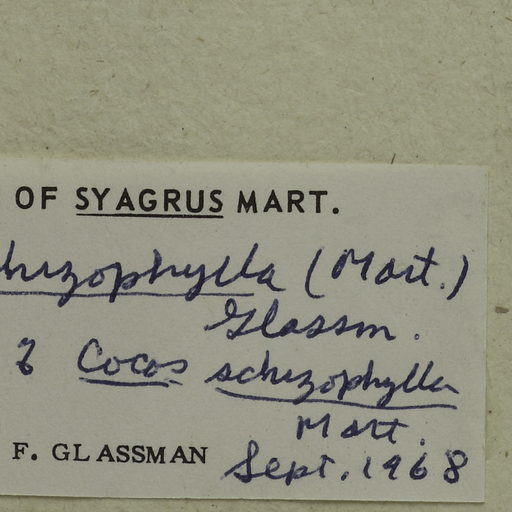 OF SYAGRUS MART.
hizophylla (Mart.)
Glassm.
Cocos schizophylla
Mart.
F. GLASSMAN Sept. 1968